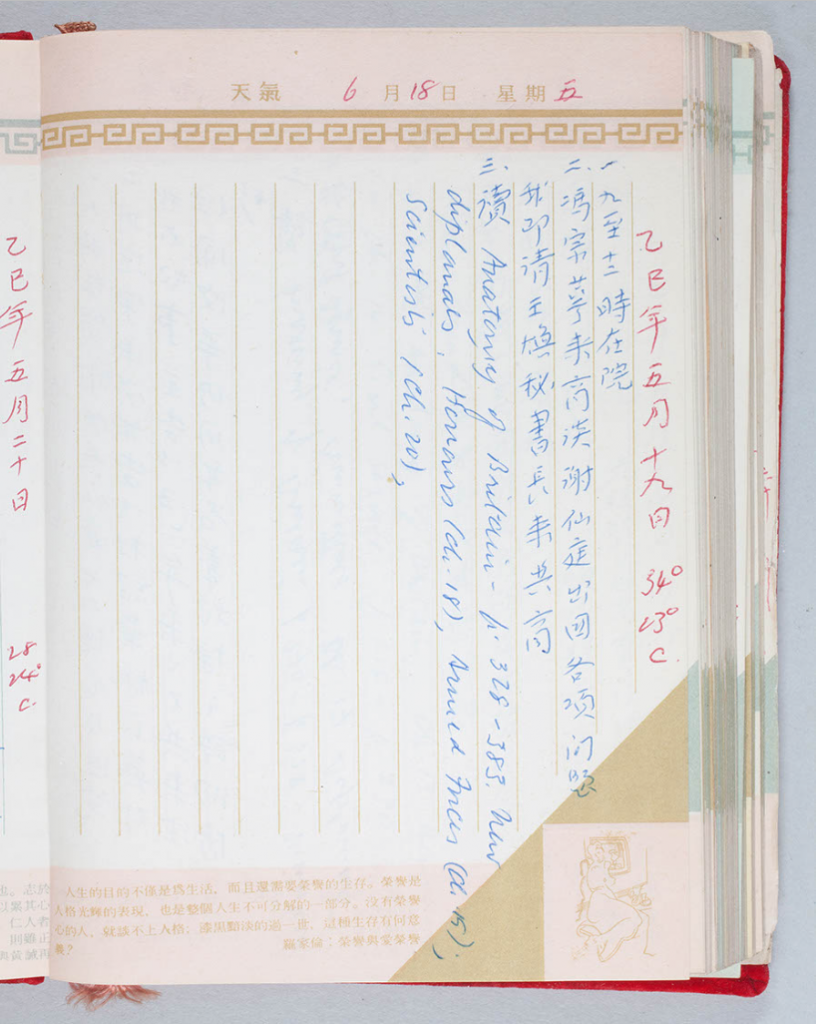 天氣 6月18日 星期五
乙巳年五月十九日 34° 23° C.
一. 九至十二時在院
二. 馮宗萼来商谈谢仙庭出国各項问题
我即请王焕秘書長来共商
三. 續 Anatomy of Britain - p. 328-383. New
diplomats, Honours (ch. 18), Armed Forces (ch. 15);
Scientists (ch. 20),
人生的目的不僅是為生活，而且還需要榮譽的生存。榮譽是
人格光輝的表現，也是整個人生不可分解的一部分。沒有榮譽
心的人，就談不上人格；漆黑黯淡的過一世，這種生存有何意
義？
羅家倫：榮譽與愛榮譽
乙巳年五月二十日
28 24° C.